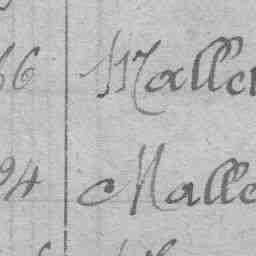 66 Malle
94 Malle